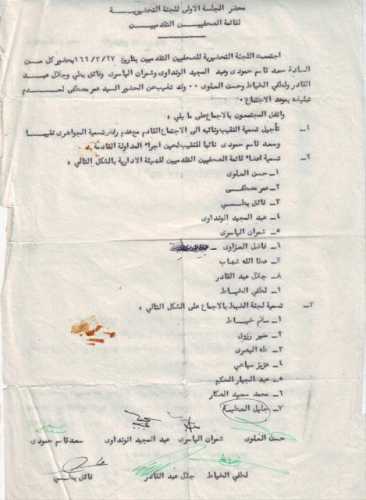 محضر الجلسة الاولى للجنة التحضيرية
لقائمة الصحفيين التقدميين
اجتمعت اللجنة التحضيرية للصحفيين التقدميين بتاريخ ٩٦٦/٢/٢٧ بحضور كل من
السادة سعد قاسم حمودي وعبد المجيد الونداوي وشمران الياسري وفائق بطي وجلال عبد
القادر ولطفي الخياط وحسن العلوي ٠٠ وقد تغيب عن الحضور السيد عمر مصطفى لعدم
تبليغه بموعد الاجتماع ٠
واتفق المجتمعون بالاجماع على ما يلي :
١ـ تأجيل تسمية النقيب ونائبه الى الاجتماع القادم مع عدم تسمية الجواهري نقيبا
وسعد قاسم حمودي نائبا للنقيب لحين اجراء المداولة القادمة ٠
٢ـ تسمية اعضاء قائمة الصحفيين التقدميين للهيئة الادارية بالشكل التالي :
١ـ حسن العلوي
٢ـ عمر مصطفى
٣ـ فائق بطي
٤ـ عبد المجيد الونداوي
٥ـ شمران الياسري
٦ـ فاضل العزاوي
٧ـ عطا الله شهاب
٨ـ جلال عبد القادر
٩ـ لطفي الخياط
٣ـ تسمية لجنة الضبط بالاجماع على الشكل التالي :
١ـ سالم خياط
٢ـ منير رزوق
٣ـ طه البصري
٤ـ عزيز سباهي
٥ـ عبد الجبار
٦ـ محمد سعيد الصكار
٧ـ
حسن العلوي شمران الياسري عبد المجيد الونداوي سعد قاسم حمودي
لطفي الخياط جلال عبد القادر فائق بطي